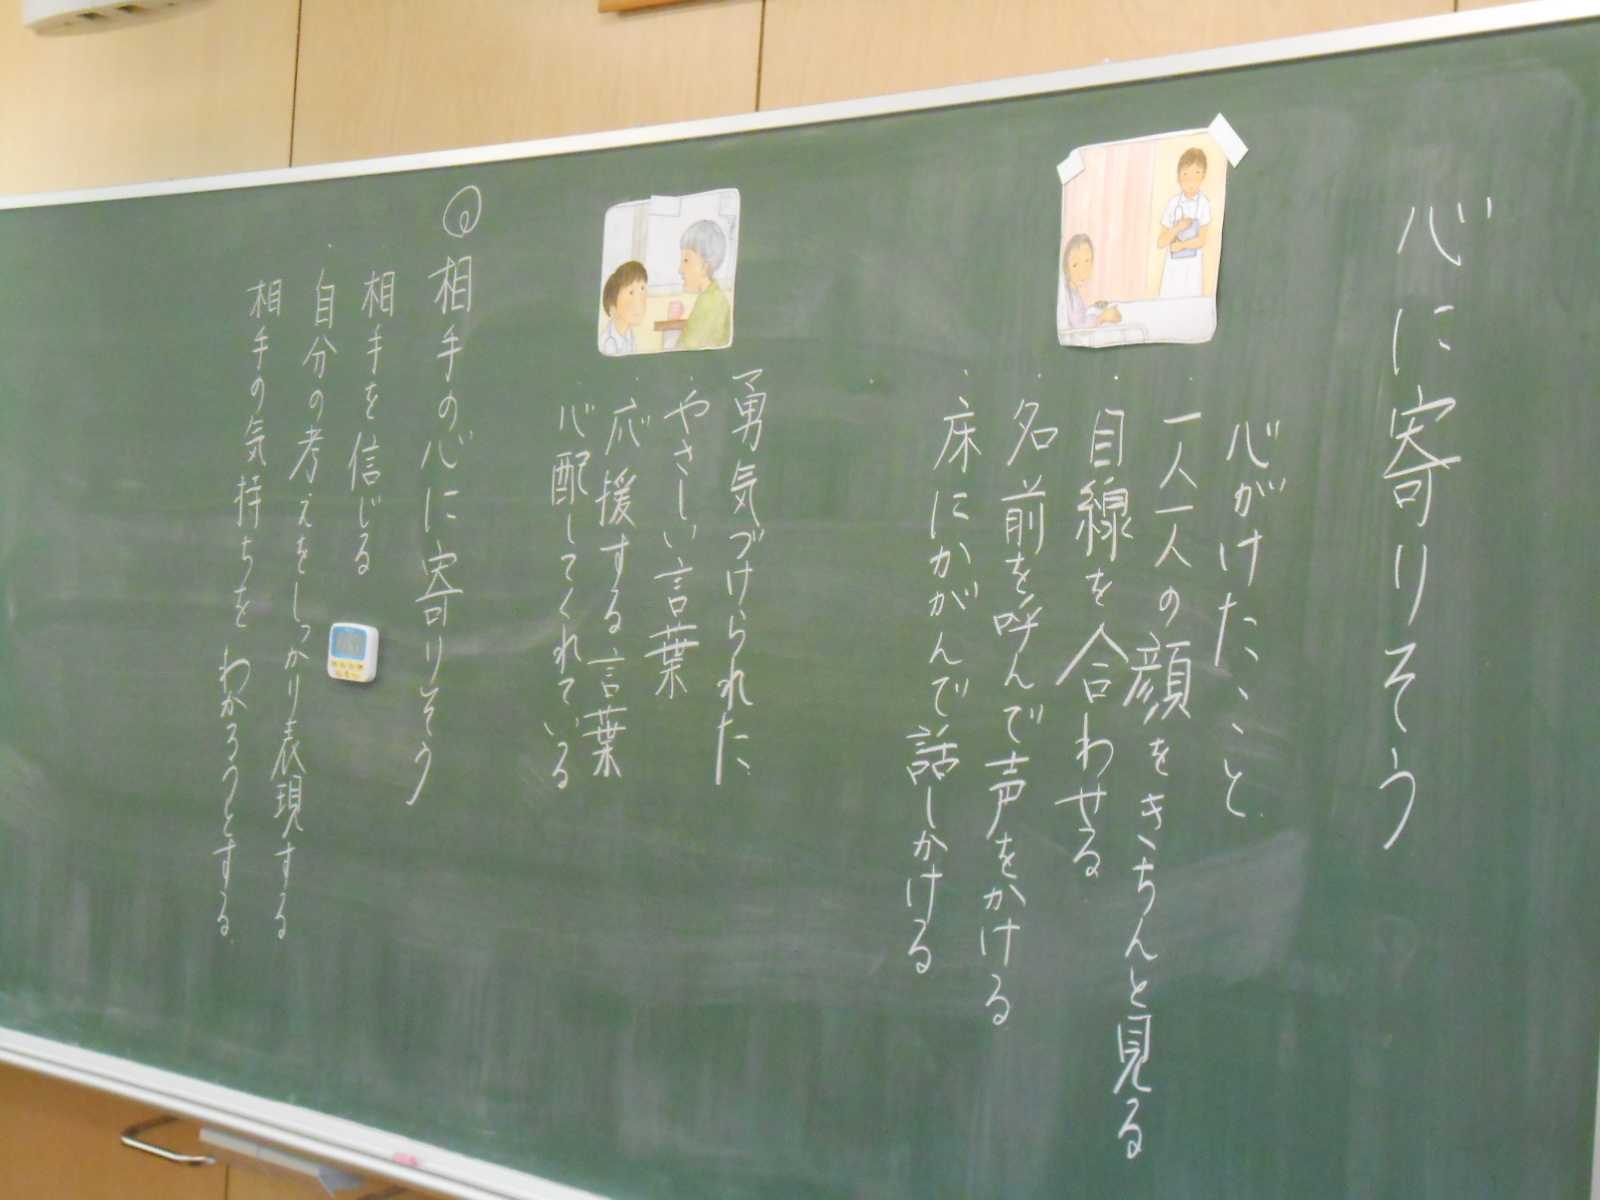 心に寄りそう
心がけたこと
・一人一人の顔をきちんと見る
・目線を合わせる
・名前を呼んで声をかける
・床にかがんで話しかける
勇気づけられた
・やさしい言葉
・応援する言葉
・心配してくれている
相手の心に寄りそう
・相手を信じる
・自分の考えをしっかり表現する
・相手の気持ちをわかろうとする